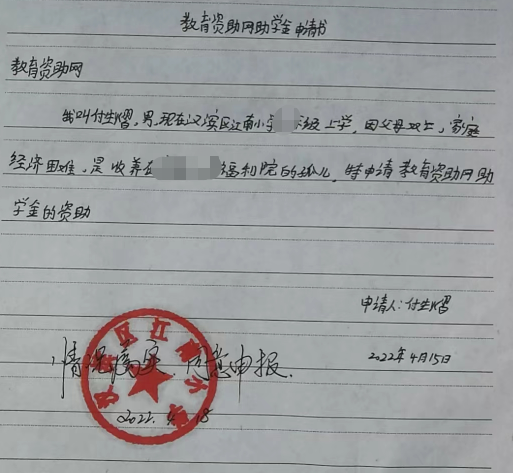 教育资助网助学金申请书
教育资助网
我叫付生熠，男，现在汉滨区江南小学 年级上学，因父母双亡，家庭
经济困难，是收养在 福利院的孤儿，特申请教育资助网助
学金的资助
申请人：付生熠
2022年4月15日
情况属实 同意申报
2022. 4. 18
区江南小